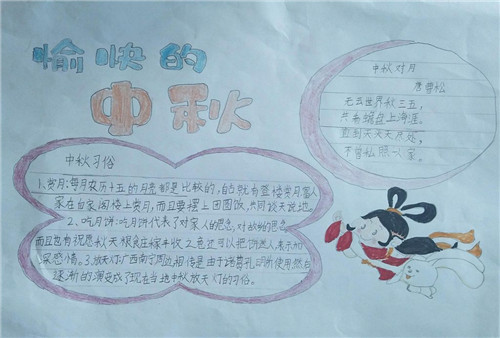 愉快的
中秋
中秋对月
唐曹松
无云世界秋三五,
共看蟾盘上海涯。
直到天头天尽处,
不曾私照一家。
中秋习俗
1、赏月:每月农历十五的月亮都是比较的,自己就有登楼赏月富人
家在自家阁楼上赏月,而且要摆上团圆饭,共同谈天说地。
2、吃月饼:吃月饼代表了对家人的思念,对故乡的思念
而且也有祝愿秋天粮食庄家丰收之意还可以把饼送人表示的
深感情。3、放天灯广西南宁周边,相传是由于诸葛孔明所使用然后
逐渐的演变成了现在当地中秋放天灯的习俗。